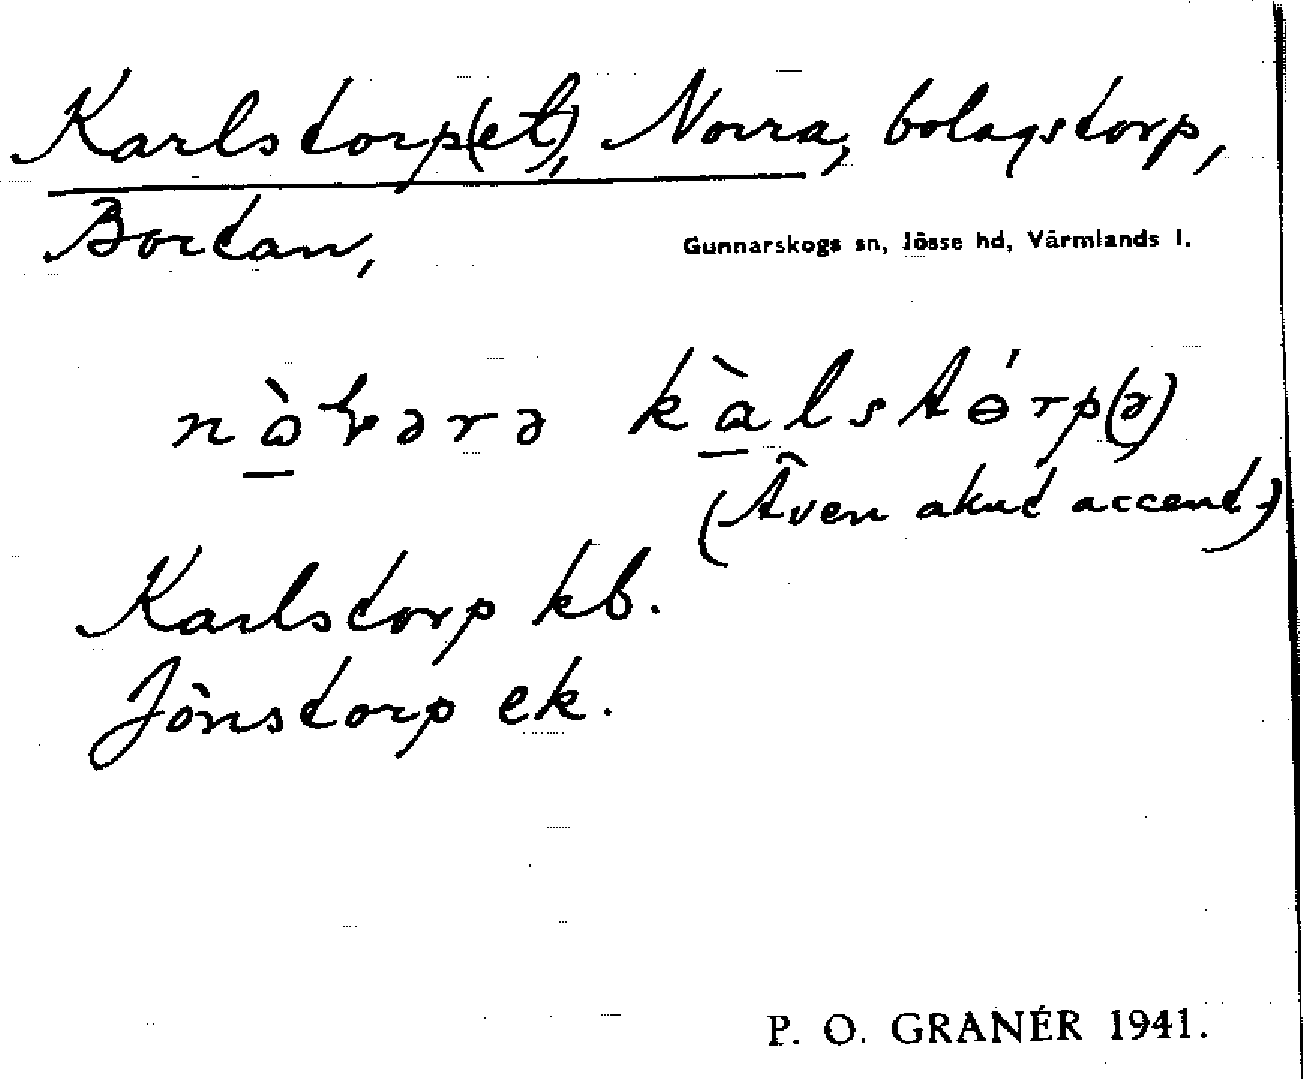 Karlstorp(et), Norra, bolagstorp,
Bortan,
Gunnarskogs sn, Jösse hd, Värmlands l.
kàlstɵ́rp(ə)
(Även akut accent.)
Karlstorp kb.
Jönstorp ek.
P. O. GRANÉR 1941.